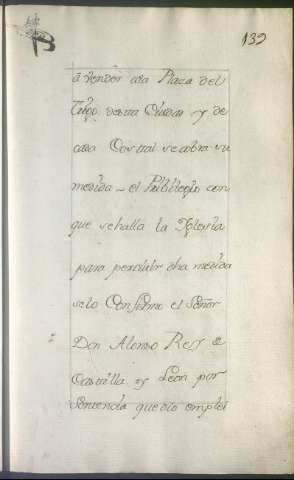 139
à vender ala Plaza del
Trigo desta Ciudad y de
cada Costal se cobra su
medida - el Pribilegio con
que sehalla la Yglesia
para percibir dha medida
selo Confirmo el Señor
Don Alonso Rey de
Castilla y Leon por
Sentencia que dio emplei